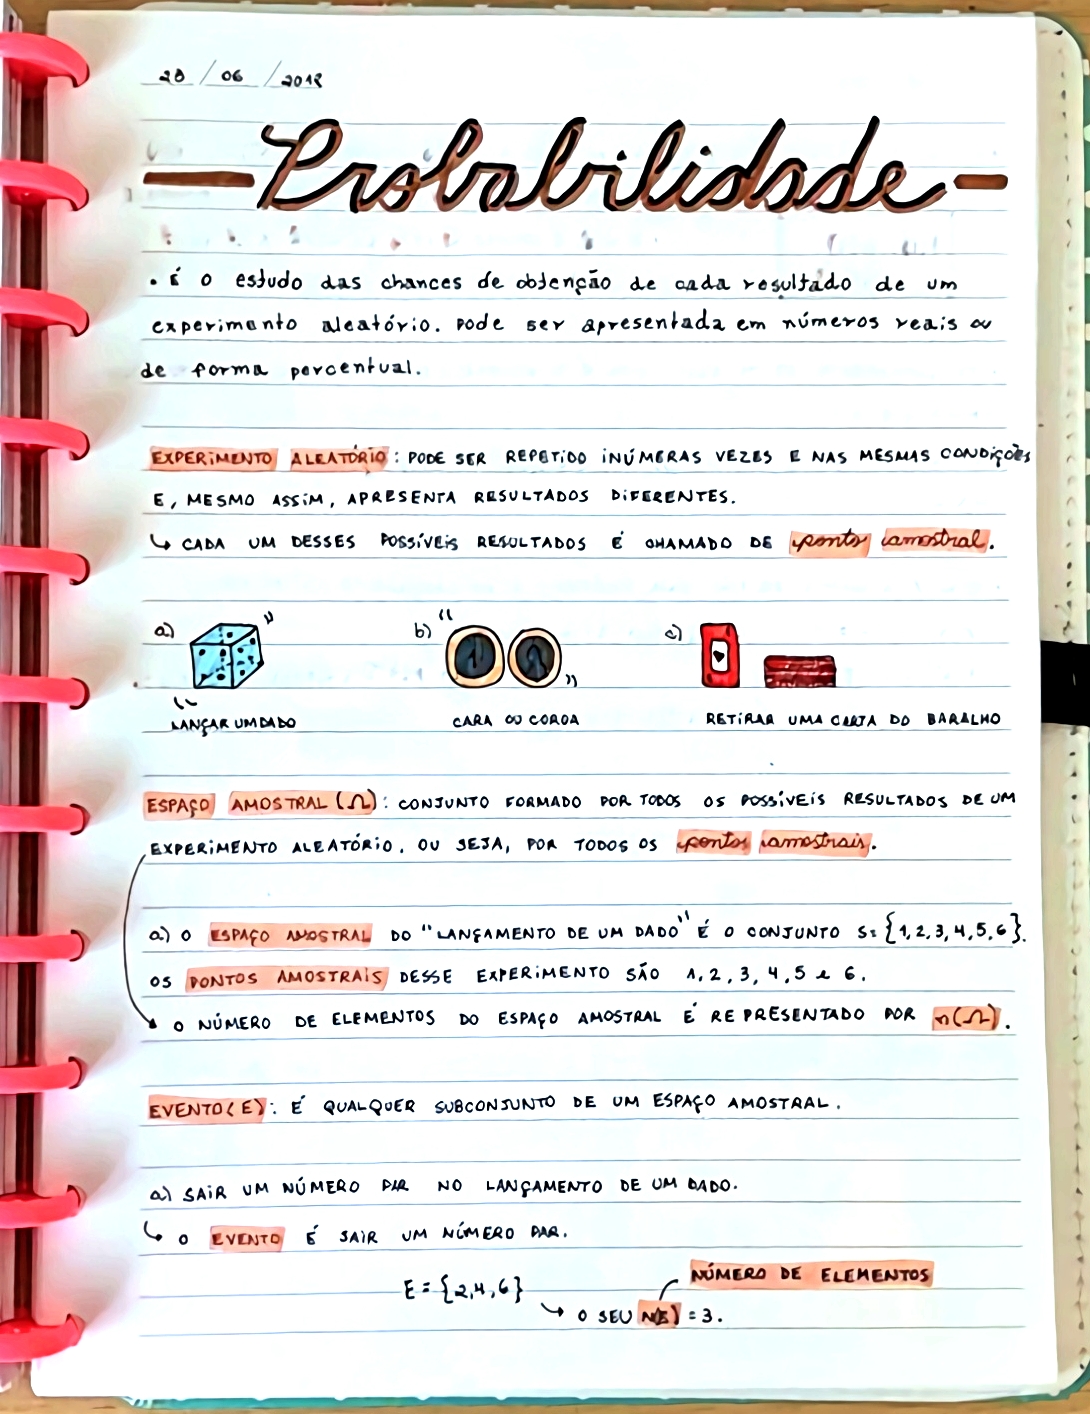 28 / 06 / 2018
Probabilidade
. É o estudo das chances de obtenção de cada resultado de um
experimento aleatório. Pode ser apresentada em números reais ou
de forma percentual.
EXPERIMENTO ALEATÓRIO: PODE SER REPETIDO INÚMERAS VEZES E NAS MESMAS CONDIÇÕES
E, MESMO ASSIM, APRESENTA RESULTADOS DIFERENTES.
↳ CADA UM DESSES POSSÍVEIS RESULTADOS É CHAMADO DE ponto amostral.
a) b) c)
LANÇAR UM DADO CARA OU COROA RETIRAR UMA CARTA DO BARALHO
ESPAÇO AMOSTRAL (Ω): CONJUNTO FORMADO POR TODOS OS POSSÍVEIS RESULTADOS DE UM
EXPERIMENTO ALEATÓRIO. OU SEJA, POR TODOS OS pontos amostrais.
a) O ESPAÇO AMOSTRAL DO "LANÇAMENTO DE UM DADO" É O CONJUNTO S= {1,2,3,4,5,6}.
OS PONTOS AMOSTRAIS DESSE EXPERIMENTO SÃO 1, 2, 3, 4, 5 e 6.
O NÚMERO DE ELEMENTOS DO ESPAÇO AMOSTRAL É REPRESENTADO POR n(Ω).
EVENTO(E): É QUALQUER SUBCONJUNTO DE UM ESPAÇO AMOSTRAL.
a) SAIR UM NÚMERO PAR NO LANÇAMENTO DE UM DADO.
↳ O EVENTO É SAIR UM NÚMERO PAR.
NÚMERO DE ELEMENTOS
E = {2,4,6}
↳ O SEU N(E) = 3.